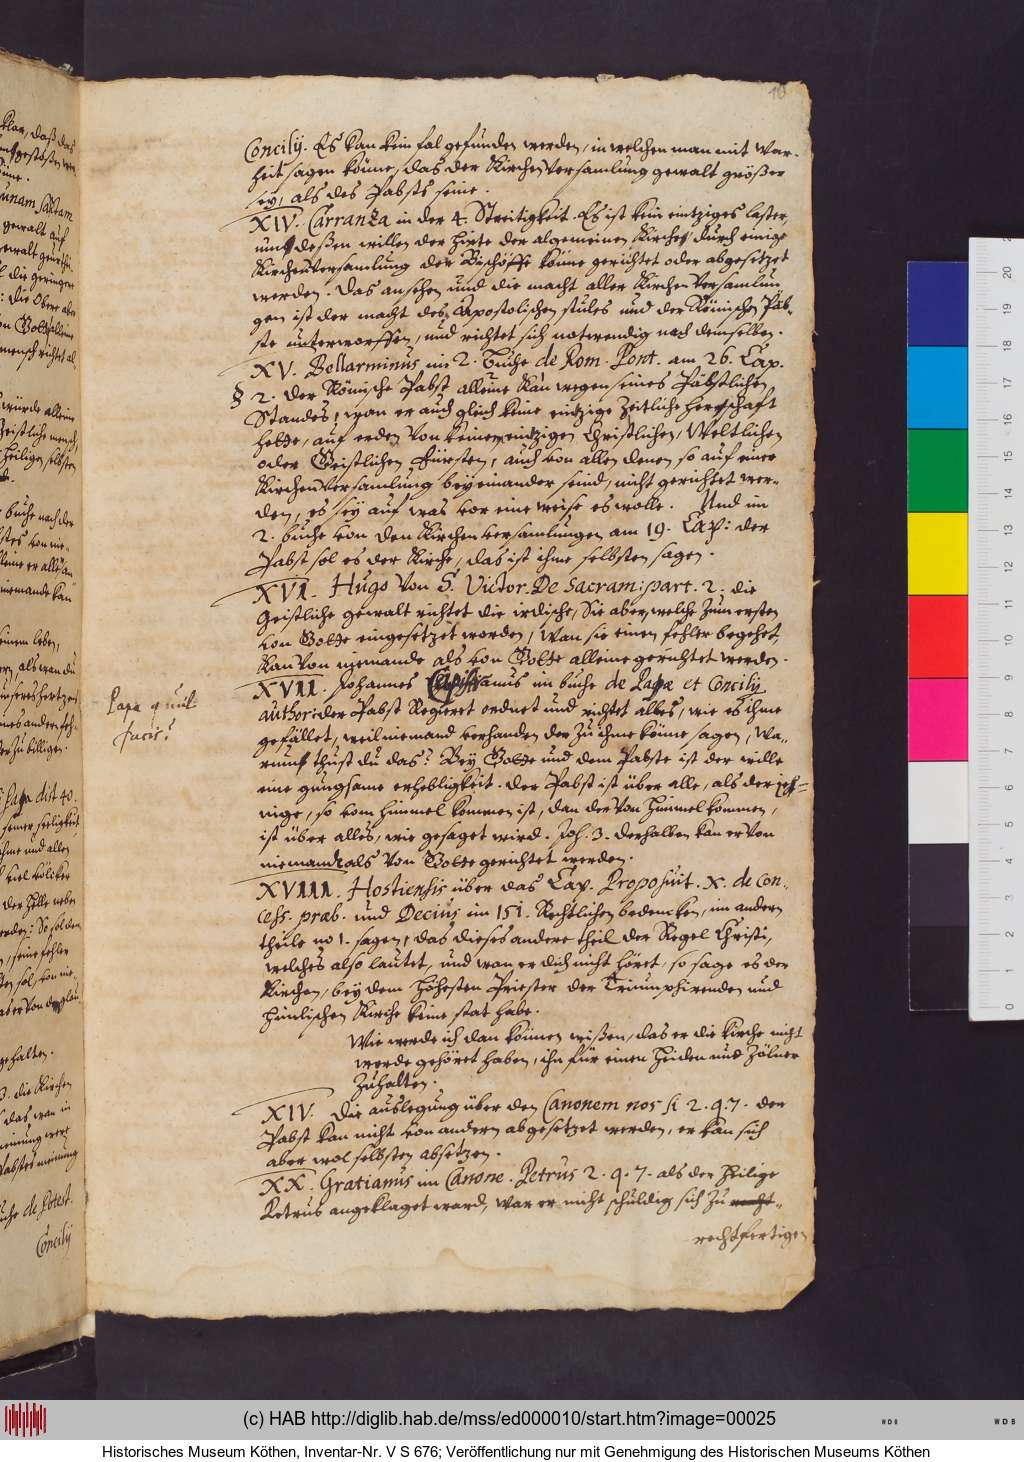 10
Concilij. Es kan kein fal gefunden werden, in welchen man mit war-
heit sagen könne, das der Kirchen versamlung gewalt größer
sey, als des Pabsts seine.
XIV. Carranza in der 4. Streitigkeit. Es ist kein eintziges laster,
umb deßen willen der Hirte der algemeinen Kirchen durch einige
Kirchenversamlung der Bischöffe könne gerichtet oder abgesetzet
werden. Das ansehen und die macht aller Kirchen versamlun
gen ist der macht des Apostolischen stules und der Römischen Päb-
ste unterworffen, und richtet sich notwendig nach demselben.
XV. Bellarminus im 2. Buche de Rom. Pont. am 26. Cap.
§ 2. der Römische Pabst alleine kan wegen seines Päbstlichen
Standes, wan er auch gleich keine eintzige Zeitliche herschaft
hette, auf erden von keinem eintzigen Christlichen, Weltlichen
oder Geistlichen Fürsten, auch von allen denen so auf einer
Kirchenversamlung beyeinander seind, nicht gerichtet wer-
den, es sey auf was vor eine weise es wolle. Und im
2. buche von den Kirchen versamlungen am 19. Cap: der
Pabst sol es der Kirche, das ist ihme selbsten sagen.
XVI. Hugo von S. Victor. De Sacram: part. 2. die
Geistliche gewalt richtet die irdische, Sie aber, welche zum ersten
von Gotte eingesetzet worden, wan sie einen fehler begehet,
kan von niemande als von Gotte alleine gerichtet werden.
XVII. Johannes Capistranus im buche de Papæ et Concilij
author: der Pabst Regieret ordnet und richtet alles, wie es ihme
gefället, weil niemand vorhanden der zu ihme könne sagen, Wa-
rumb thust du das? Bey Gotte und dem Pabste ist der wille
eine gnugsame erhebligkeit. der Pabst ist über alle, als der jeh-
nige, so vom himmel kommen ist, dan der von himmel kommen,
ist über alles, wie gesaget wird. Joh. 3. derhalben kan er von
niemande als von Gotte gerichtet werden.
XVIII. Hostiensis über das Cap. Proposuit. X. de Con-
cess. præb. und Decius im 151. Rechtlichen bedencken, im andern
theile no 1. sagen, das dieses andere theil der Regel Christi,
welches also lautet, und wan er dich nicht höret, so sage es der
Kirchen, bey dem höhesten Priester der Triumphirenden und
himlischen Kirche keine stat habe.
Wie werde ich dan können wißen, das er die kirche nicht
werde gehöret haben, ihn für einen Heiden und Zölner
zuhalten.
XIV. Die auslegung über den Canonem nos si 2. q. 7. der
Pabst kan nicht von andern abgesetzet werden, er kan sich
aber wol selbsten absetzen.
XX. Gratianus im Canone. Petrus 2. q. 7. als der Heilige
Petrus angeklaget ward, war er nicht schuldig sich zu recht-
rechtfertigen
Papa q
facis?
unam sanctam
gewalt auf
Papa dist 40.
seiner seeligkeit
gehalten.
3. die Kirchen
das wan in
Pabstes meinung
buche de Potest.
Concilij
0 1 2 3 4 5 6 7 8 9 10 11 12 13 14 15 16 17 18 19 20
(c) HAB http://diglib.hab.de/mss/ed000010/start.htm?image=00025
WDB
WDB
Historisches Museum Köthen, Inventar-Nr. V S 676; Veröffentlichung nur mit Genehmigung des Historischen Museums Köthen